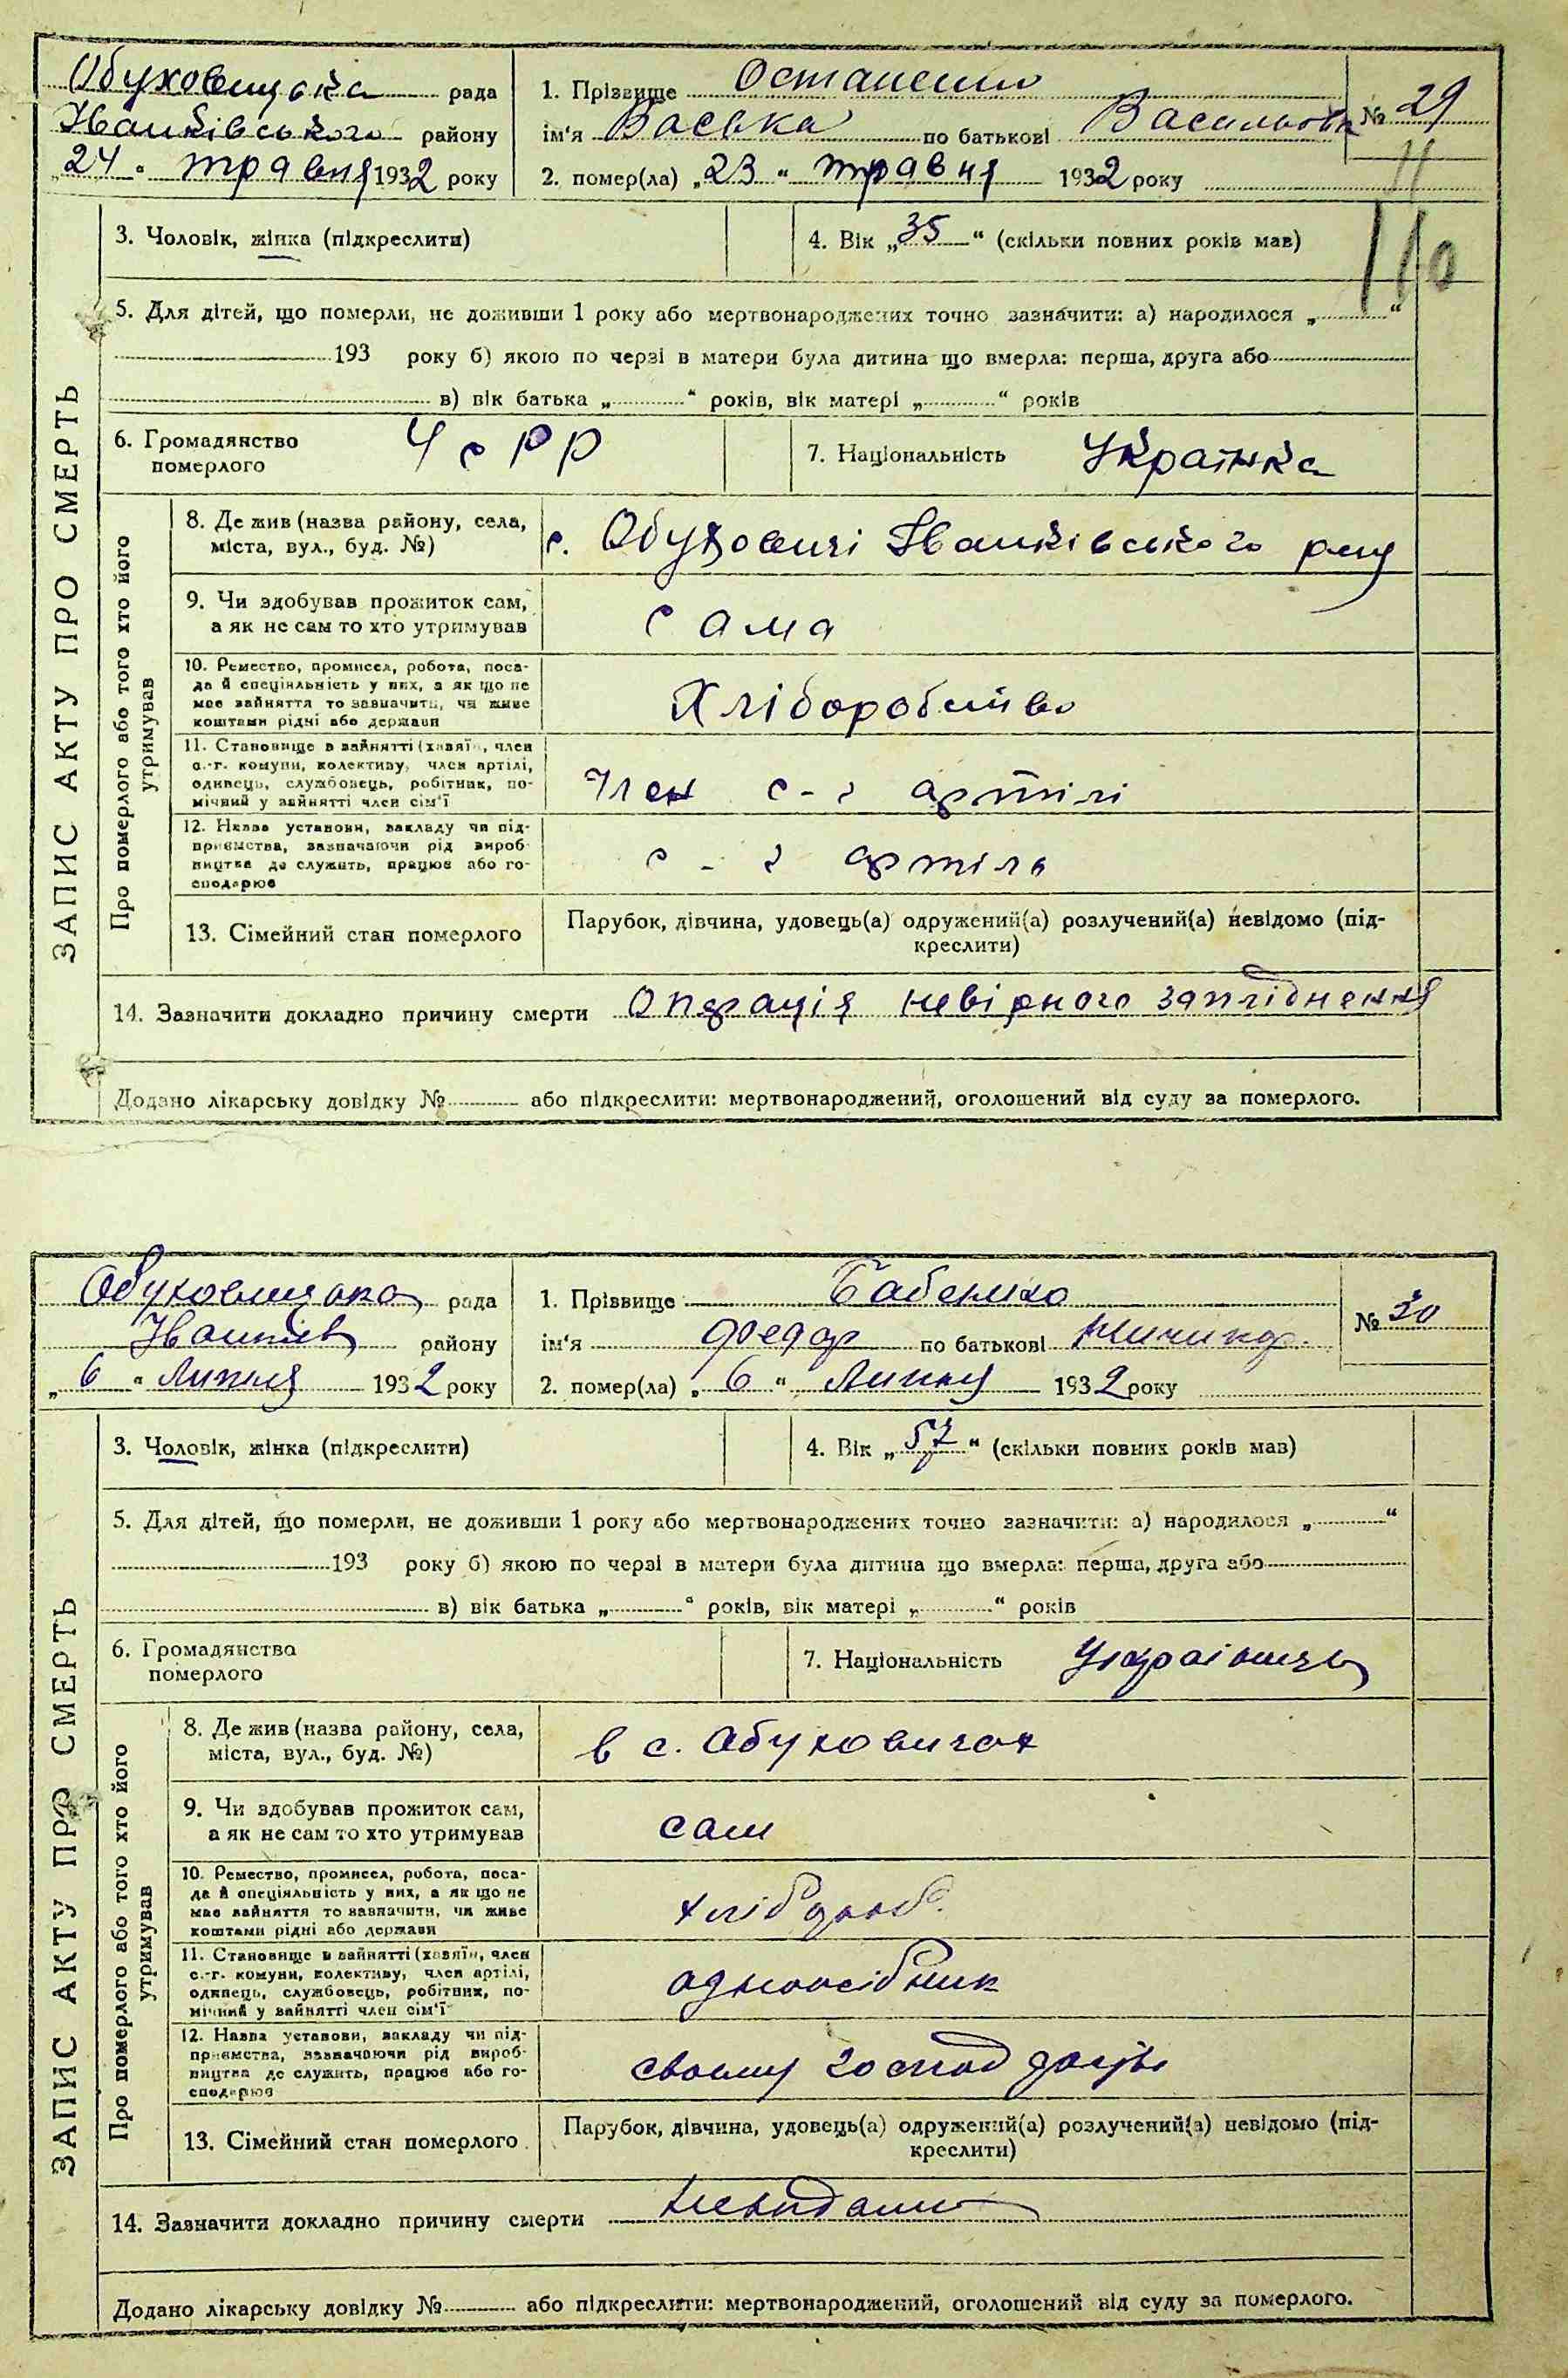 Обуховицька рада
1. Прізвище Остапенко
№ 29
Іванківського району
ім'я Васька по батькові Васильовна
„24“ травня 1932 року
2. помер(ла) „23“ травня 1932 року
11
110
3. Чоловік, жінка (підкреслити)
4. Вік „35“ (скільки повних років мав)
5. Для дітей, що померли, не доживши 1 року або мертвонароджених точно зазначити: а) народилося „ “
193 року б) якою по черзі в матери була дитина що вмерла: перша, друга або
в) вік батька „ “ років, вік матері „ “ років
6. Громадянство померлого УСРР
7. Національність Українка
ЗАПИС АКТУ ПРО СМЕРТЬ
Про померлого або того хто його утримував
8. Де жив (назва району, села, міста, вул., буд. №)
с. Обуховичі Іванківського рну
9. Чи здобував прожиток сам, а як не сам то хто утримував
сама
10. Ремество, промисел, робота, поса-
да й спеціяльність у них, а як що не
має зайняття то зазначить, чи живе
коштами рідні або держави
Хліборобство
11. Становище в зайнятті (хазяїн, член
с.-г. комуни, колективу, член артілі,
одинець, службовець, робітник, по-
мічний у зайнятті член сім'ї
Член с-г артілі
12. Назва установи, закладу чи під-
приємства, зазначаючи рід вироб-
ництва де служить, працює або го-
сподарює
с-г артіль
13. Сімейний стан померлого
Парубок, дівчина, удовець(а) одружений(а) розлучений(а) невідомо (під-
креслити)
14. Зазначити докладно причину смерти Операція невірного запліднення
Додано лікарську довідку № або підкреслити: мертвонароджений, оголошений від суду за померлого.
Обуховицька рада
1. Прізвище Бабенко
№ 30
Іванків району
ім'я Федор по батькові Никифор.
„6“ Липня 1932 року
2. помер(ла) „6“ Липня 1932 року
3. Чоловік, жінка (підкреслити)
4. Вік „57“ (скільки повних років мав)
5. Для дітей, що померли, не доживши 1 року або мертвонароджених точно зазначити: а) народилося „ “
193 року б) якою по черзі в матери була дитина що вмерла: перша, друга або
в) вік батька „ “ років, вік матері „ “ років
6. Громадянство померлого
7. Національність Українець
ЗАПИС АКТУ ПРО СМЕРТЬ
Про померлого або того хто його утримував
8. Де жив (назва району, села, міста, вул., буд. №)
в с. Обуховичах
9. Чи здобував прожиток сам, а як не сам то хто утримував
сам
10. Ремество, промисел, робота, поса-
да й спеціяльність у них, а як що не
має зайняття то зазначити, чи живе
коштами рідні або держави
хлібороб.
11. Становище в зайнятті (хазяїн, член
с.-г. комуни, колективу, член артілі,
одинець, службовець, робітник, по-
мічний у зайнятті член сім'ї
одноосібник
12. Назва установи, закладу чи під-
приємства, зазначаючи рід вироб-
ництва де служить, працює або го-
сподарює
своему господарстві
13. Сімейний стан померлого
Парубок, дівчина, удовець(а) одружений(а) розлучений(а) невідомо (під-
креслити)
14. Зазначити докладно причину смерти
Додано лікарську довідку № або підкреслити: мертвонароджений, оголошений від суду за померлого.